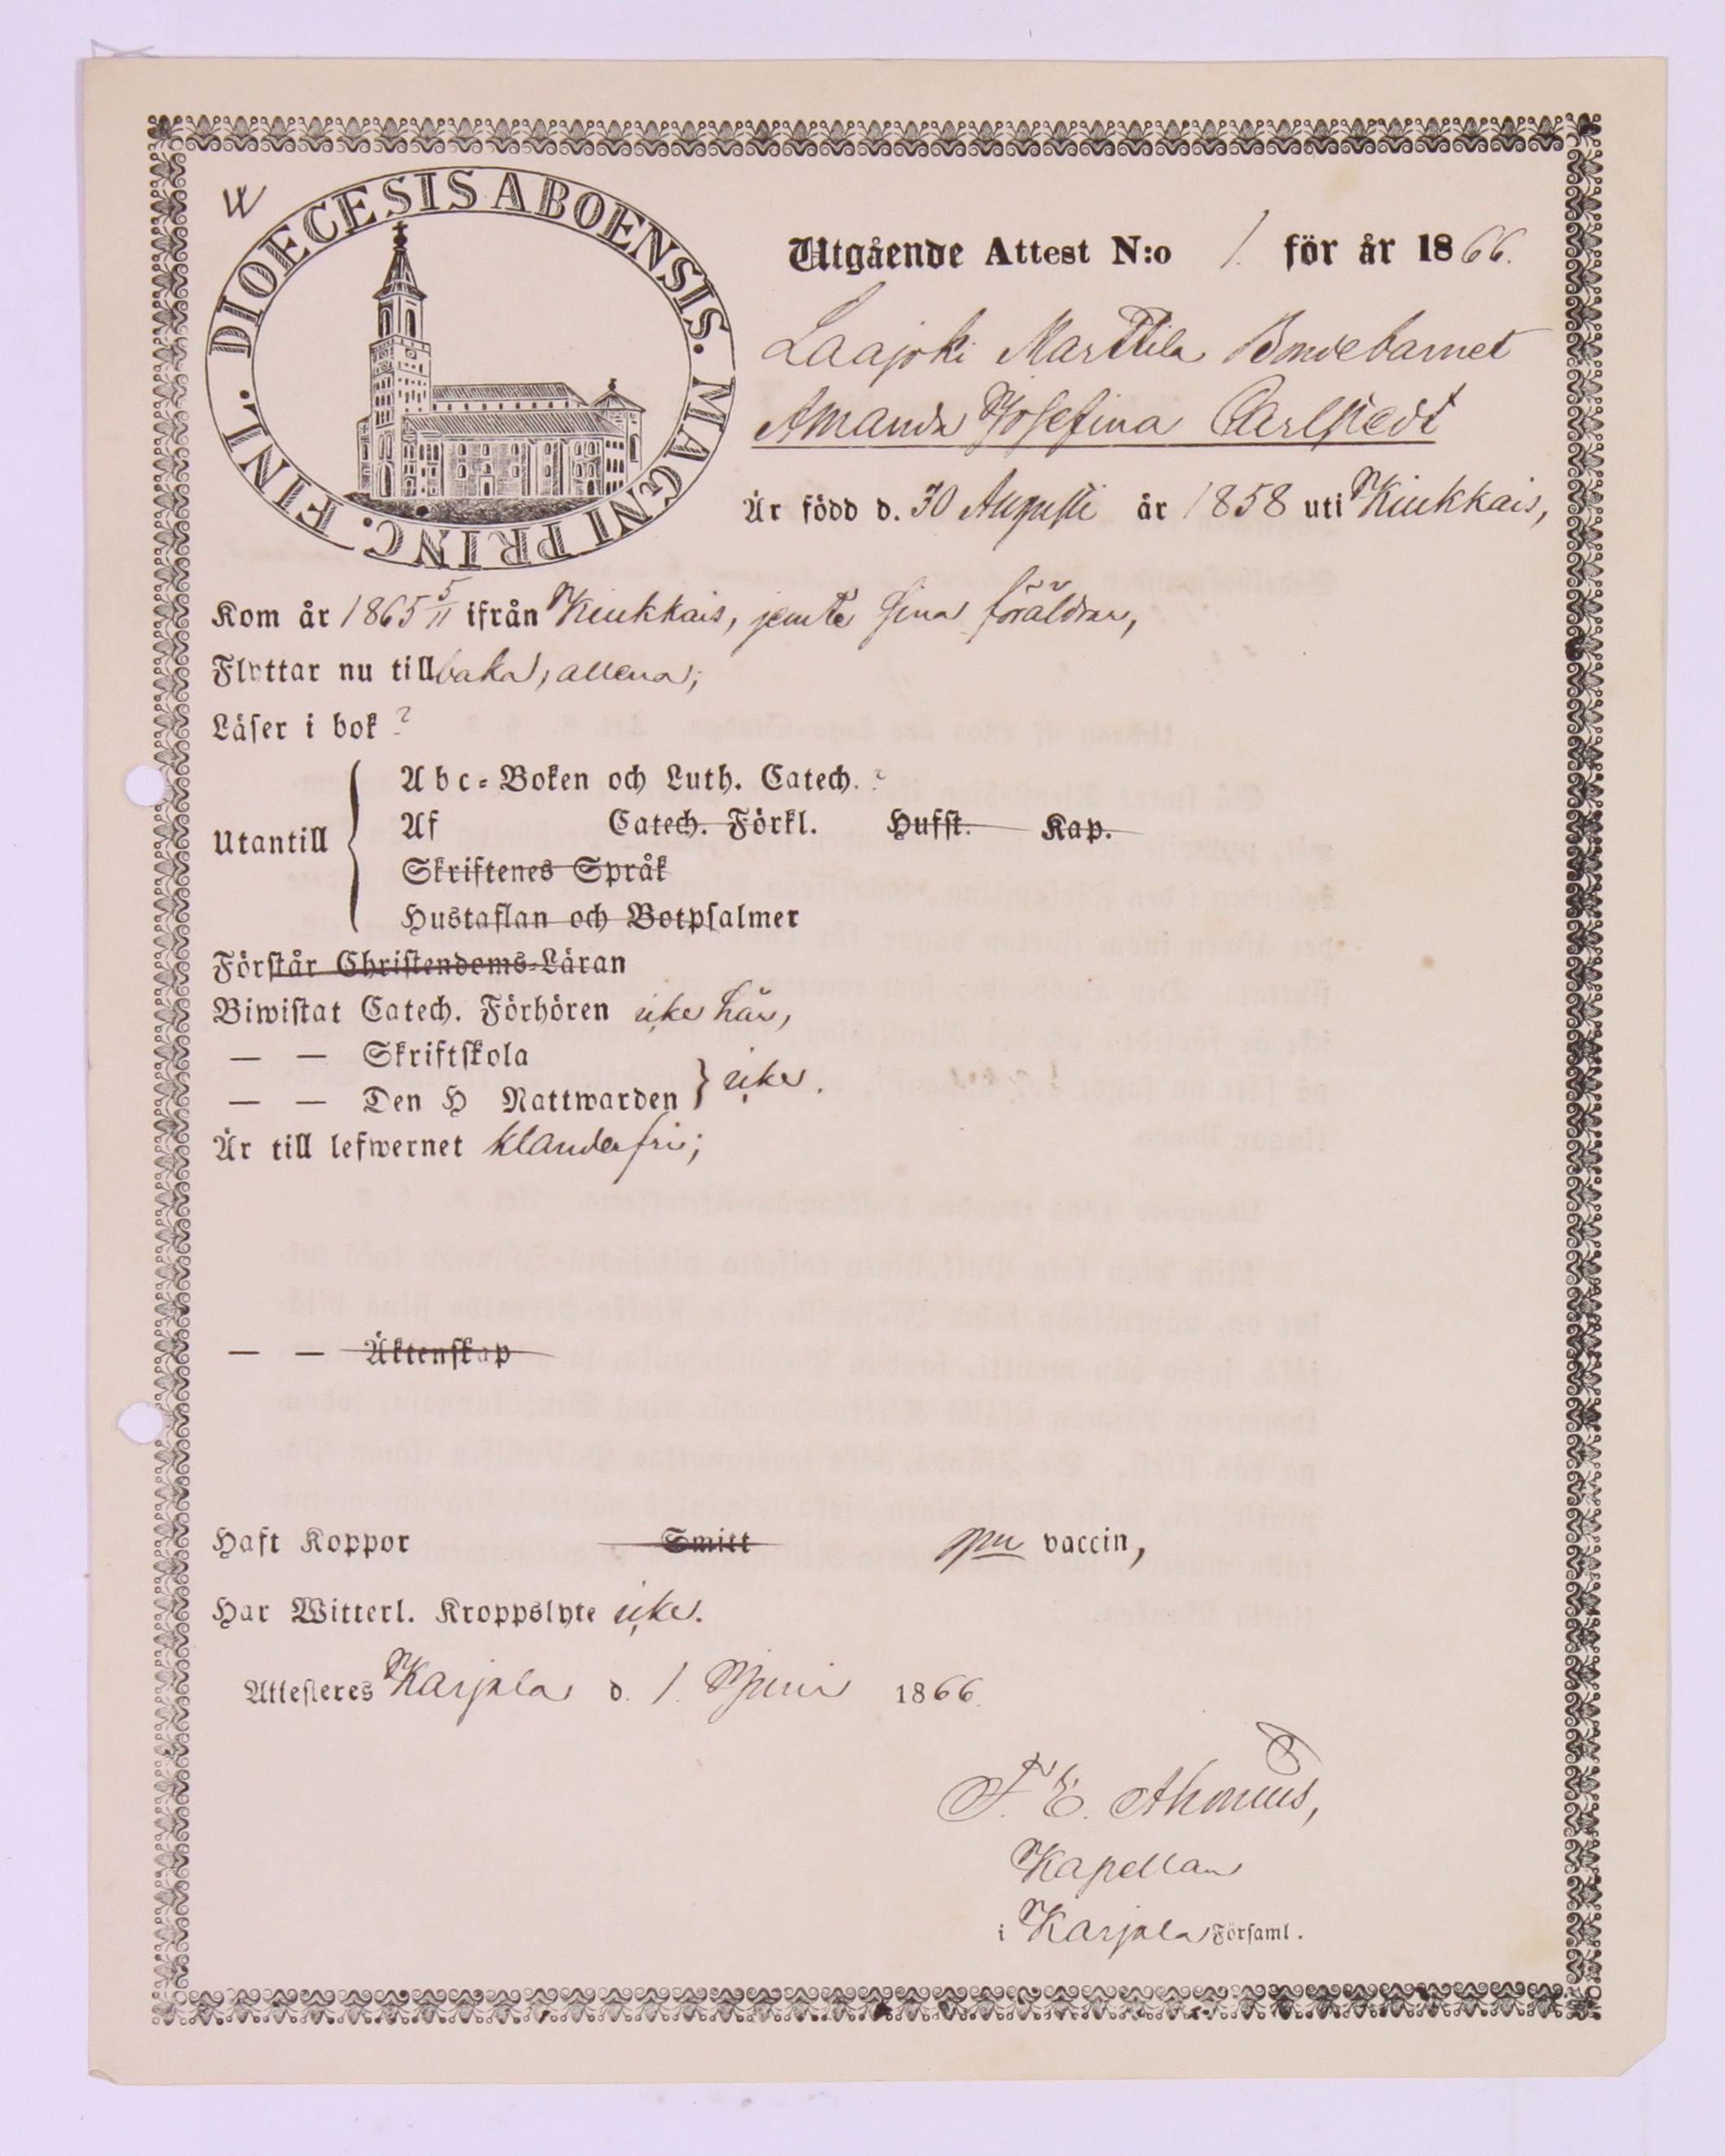 DIOECESIS ABOENSIS. MAGNI PRINC. FINL.
Utgående Attest N:o 1. för år 1866.
Laajoki Marttila Bondebarnet
Amanda Josefina Carlstedt
Är född d. 30 Augusti år 1858 uti Kiukkais,
Kom år 1865 5/11 ifrån Kiukkais, jemte sina föräldrar,
Flyttar nu tillbaka, allena;
Läser i bok ?
Abc-Boken och Luth. Catech. ?
Utantill
Af Catech. Förkl. Hufst. Kap.
Skriftenes Språk
Hustaflan och Botpsalmer
Förstår Christendoms-Läran
Biwistat Catech. Förhören icke här,
— — Skriftskola
— — Den H Nattwarden } icke.
Är till lefwernet klanderfri;
— — Äktenskap
Haft Koppor Smitt pr vaccin,
Har Witterl. Kroppslyte icke.
Attesteres Karjala d. 1. Juni 1866.
F. E.
Kapellan
i Karjala Församl.